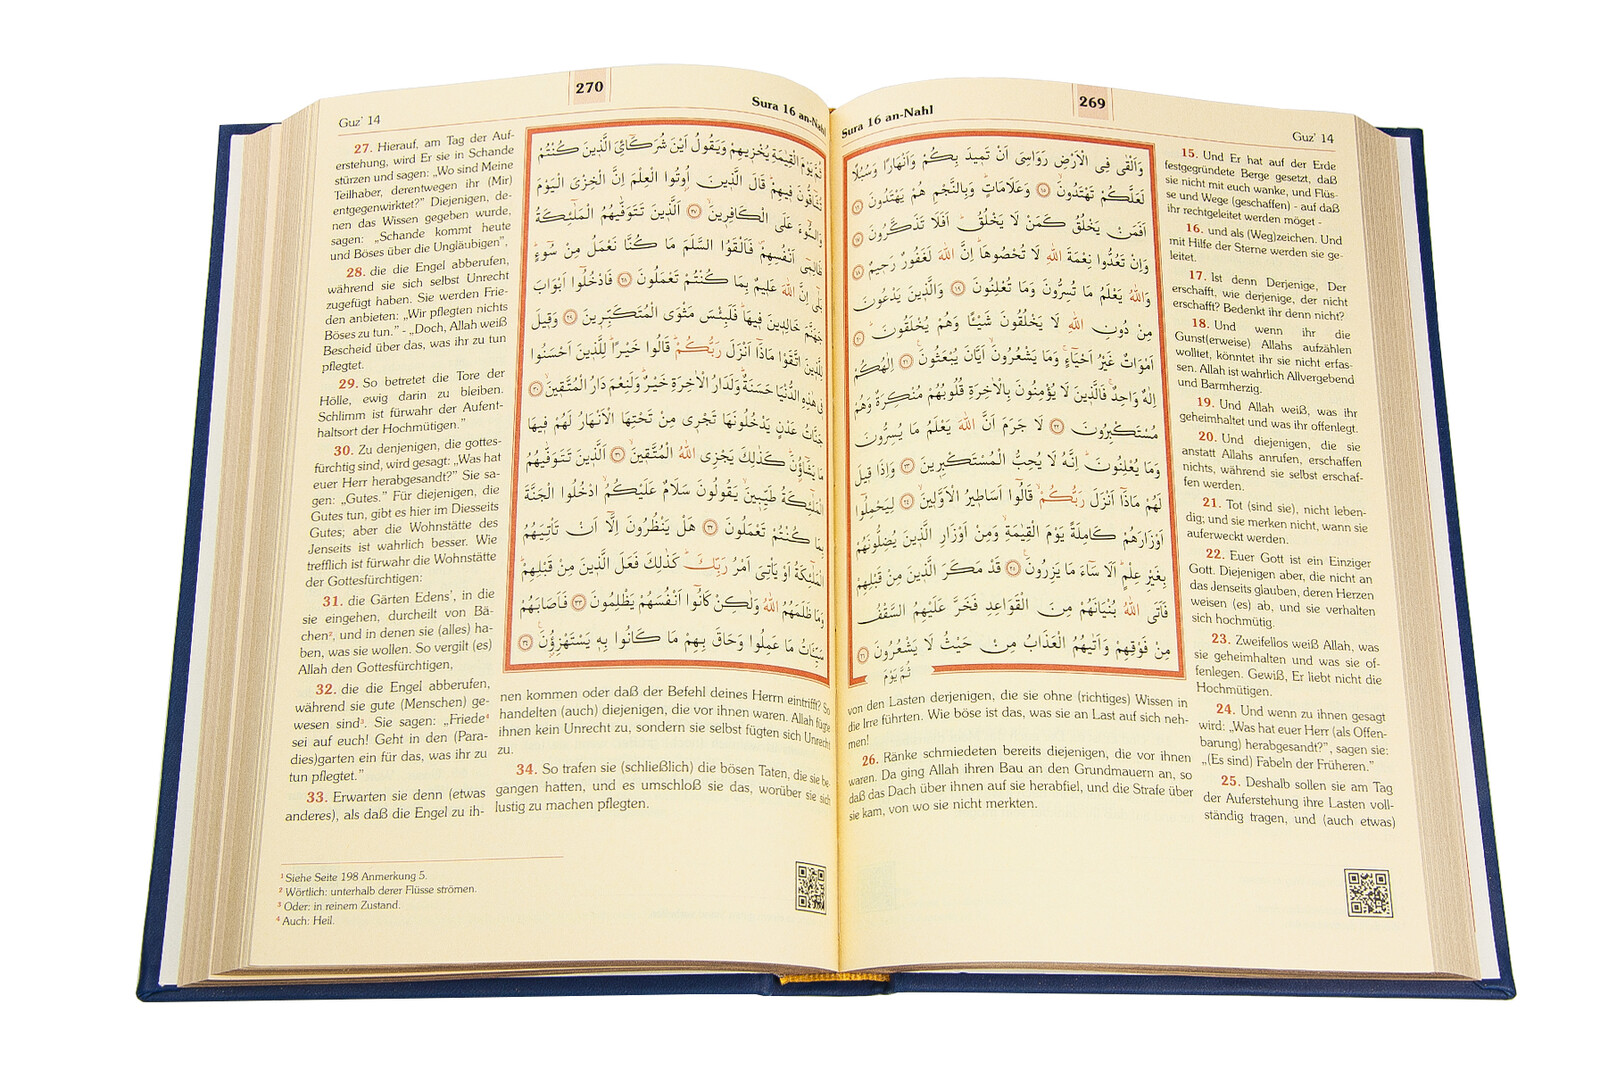 269
Sura 16 an-Nahl
Guz' 14
وَاَلْقٰى فِى الْاَرْضِ رَوَاسِىَ اَنْ تَمِيدَ بِكُمْ وَاَنْهَارًا وَسُبُلًا
لَعَلَّكُمْ تَهْتَدُونَۙ ﴿١٥﴾ وَعَلَامَاتٍۜ وَبِالنَّجْمِ هُمْ يَهْتَدُونَ ﴿١٦﴾
اَفَمَنْ يَخْلُقُ كَمَنْ لَا يَخْلُقُۜ اَفَلَا تَذَكَّرُونَ ﴿١٧﴾
وَاِنْ تَعُدُّوا نِعْمَةَ اللّٰهِ لَا تُحْصُوهَاۜ اِنَّ اللّٰهَ لَغَفُورٌ رَحِيمٌ ﴿١٨﴾
وَاللّٰهُ يَعْلَمُ مَا تُسِرُّونَ وَمَا تُعْلِنُونَ ﴿١٩﴾ وَالَّذِينَ يَدْعُونَ
مِنْ دُونِ اللّٰهِ لَا يَخْلُقُونَ شَيْـًٔا وَهُمْ يُخْلَقُونَۜ ﴿٢٠﴾
اَمْوَاتٌ غَيْرُ اَحْيَٓاءٍۚ وَمَا يَشْعُرُونَۙ اَيَّانَ يُبْعَثُونَ۟ ﴿٢١﴾ اِلٰهُكُمْ
اِلٰهٌ وَاحِدٌۚ فَالَّذِينَ لَا يُؤْمِنُونَ بِالْاٰخِرَةِ قُلُوبُهُمْ مُنْكِرَةٌ وَهُمْ
مُسْتَكْبِرُونَ ﴿٢٢﴾ لَا جَرَمَ اَنَّ اللّٰهَ يَعْلَمُ مَا يُسِرُّونَ
وَمَا يُعْلِنُونَۜ اِنَّهُ لَا يُحِبُّ الْمُسْتَكْبِرِينَ ﴿٢٣﴾ وَاِذَا قِيلَ
لَهُمْ مَاذَٓا اَنْزَلَ رَبُّكُمْۙ قَالُٓوا اَسَاطِيرُ الْاَوَّلِينَۙ ﴿٢٤﴾ لِيَحْمِلُٓوا
اَوْزَارَهُمْ كَامِلَةً يَوْمَ الْقِيٰمَةِۙ وَمِنْ اَوْزَارِ الَّذِينَ يُضِلُّونَهُمْ
بِغَيْرِ عِلْمٍۜ اَلَا سَٓاءَ مَا يَزِرُونَ۟ ﴿٢٥﴾ قَدْ مَكَرَ الَّذِينَ مِنْ قَبْلِهِمْ
فَاَتَى اللّٰهُ بُنْيَانَهُمْ مِنَ الْقَوَاعِدِ فَخَرَّ عَلَيْهِمُ السَّقْفُ
مِنْ فَوْقِهِمْ وَاَتٰيهُمُ الْعَذَابُ مِنْ حَيْثُ لَا يَشْعُرُونَ ﴿٢٦﴾
ثُمَّ يَوْمَ
15. Und Er hat auf der Erde
festgegründete Berge gesetzt, daß
sie nicht mit euch wanke, und Flüs-
se und Wege (geschaffen) - auf daß
ihr rechtgeleitet werden möget -
16. und als (Weg)zeichen. Und
mit Hilfe der Sterne werden sie ge-
leitet.
17. Ist denn Derjenige, Der
erschafft, wie derjenige, der nicht
erschafft? Bedenkt ihr denn nicht?
18. Und wenn ihr die
Gunst(erweise) Allahs aufzählen
wolltet, könntet ihr sie nicht erfas-
sen. Allah ist wahrlich Allvergebend
und Barmherzig.
19. Und Allah weiß, was ihr
geheimhaltet und was ihr offenlegt.
20. Und diejenigen, die sie
anstatt Allahs anrufen, erschaffen
nichts, während sie selbst erschaf-
fen werden.
21. Tot (sind sie), nicht leben-
dig; und sie merken nicht, wann sie
auferweckt werden.
22. Euer Gott ist ein Einziger
Gott. Diejenigen aber, die nicht an
das Jenseits glauben, deren Herzen
weisen (es) ab, und sie verhalten
sich hochmütig.
23. Zweifellos weiß Allah, was
sie geheimhalten und was sie of-
fenlegen. Gewiß, Er liebt nicht die
Hochmütigen.
24. Und wenn zu ihnen gesagt
wird: „Was hat euer Herr (als Offen-
barung) herabgesandt?”, sagen sie:
„(Es sind) Fabeln der Früheren.”
25. Deshalb sollen sie am Tag
der Auferstehung ihre Lasten voll-
ständig tragen, und (auch etwas)
von den Lasten derjenigen, die sie ohne (richtiges) Wissen in
die Irre führten. Wie böse ist das, was sie an Last auf sich neh-
men!
26. Ränke schmiedeten bereits diejenigen, die vor ihnen
waren. Da ging Allah ihren Bau an den Grundmauern an, so
daß das Dach über ihnen auf sie herabfiel, und die Strafe über
sie kam, von wo sie nicht merkten.
270
Guz' 14
Sura 16 an-Nahl
ثُمَّ يَوْمَ الْقِيٰمَةِ يُخْزِيهِمْ وَيَقُولُ اَيْنَ شُرَكَٓائِىَ الَّذِينَ كُنْتُمْ
تُشَٓاقُّونَ فِيهِمْۜ قَالَ الَّذِينَ اُوتُوا الْعِلْمَ اِنَّ الْخِزْىَ الْيَوْمَ
وَالسُّٓوءَ عَلَى الْكَافِرِينَۙ ﴿٢٧﴾ اَلَّذِينَ تَتَوَفّٰيهُمُ الْمَلٰٓئِكَةُ
ظَالِمِٓى اَنْفُسِهِمْۖ فَاَلْقَوُا السَّلَمَ مَا كُنَّا نَعْمَلُ مِنْ سُٓوءٍۜ
بَلٰٓى اِنَّ اللّٰهَ عَلِيمٌ بِمَا كُنْتُمْ تَعْمَلُونَ ﴿٢٨﴾ فَادْخُلُٓوا اَبْوَابَ
جَهَنَّمَ خَالِدِينَ فِيهَاۜ فَلَبِئْسَ مَثْوَى الْمُتَكَبِّرِينَ ﴿٢٩﴾ وَقِيلَ
لِلَّذِينَ اتَّقَوْا مَاذَٓا اَنْزَلَ رَبُّكُمْۜ قَالُوا خَيْرًاۜ لِلَّذِينَ اَحْسَنُوا
فِى هٰذِهِ الدُّنْيَا حَسَنَةٌۜ وَلَدَارُ الْاٰخِرَةِ خَيْرٌۜ وَلَنِعْمَ دَارُ الْمُتَّقِينَۙ ﴿٣٠﴾
جَنَّاتُ عَدْنٍ يَدْخُلُونَهَا تَجْرِى مِنْ تَحْتِهَا الْاَنْهَارُ لَهُمْ فِيهَا
مَا يَشَٓاؤُ۫نَۜ كَذٰلِكَ يَجْزِى اللّٰهُ الْمُتَّقِينَۙ ﴿٣١﴾ اَلَّذِينَ تَتَوَفّٰيهُمُ
الْمَلٰٓئِكَةُ طَيِّبِينَۙ يَقُولُونَ سَلَامٌ عَلَيْكُمُۙ ادْخُلُوا الْجَنَّةَ
بِمَا كُنْتُمْ تَعْمَلُونَ ﴿٣٢﴾ هَلْ يَنْظُرُونَ اِلَّٓا اَنْ تَأْتِيَهُمُ
الْمَلٰٓئِكَةُ اَوْ يَأْتِىَ اَمْرُ رَبِّكَۜ كَذٰلِكَ فَعَلَ الَّذِينَ مِنْ قَبْلِهِمْۜ
وَمَا ظَلَمَهُمُ اللّٰهُ وَلٰكِنْ كَانُٓوا اَنْفُسَهُمْ يَظْلِمُونَ ﴿٣٣﴾ فَاَصَابَهُمْ
سَيِّـَٔاتُ مَا عَمِلُوا وَحَاقَ بِهِمْ مَا كَانُوا بِهِ يَسْتَهْزِؤُ۫نَ۟ ﴿٣٤﴾
27. Hierauf, am Tag der Auf-
erstehung, wird Er sie in Schande
stürzen und sagen: „Wo sind Meine
Teilhaber, derentwegen ihr (Mir)
entgegenwirktet?” Diejenigen, de-
nen das Wissen gegeben wurde,
sagen: „Schande kommt heute
und Böses über die Ungläubigen”,
28. die die Engel abberufen,
während sie sich selbst Unrecht
zugefügt haben. Sie werden Frie-
den anbieten: „Wir pflegten nichts
Böses zu tun.” - „Doch, Allah weiß
Bescheid über das, was ihr zu tun
pflegtet.
29. So betretet die Tore der
Hölle, ewig darin zu bleiben.
Schlimm ist fürwahr der Aufent-
haltsort der Hochmütigen.”
30. Zu denjenigen, die gottes-
fürchtig sind, wird gesagt: „Was hat
euer Herr herabgesandt?” Sie sa-
gen: „Gutes.” Für diejenigen, die
Gutes tun, gibt es hier im Diesseits
Gutes; aber die Wohnstätte des
Jenseits ist wahrlich besser. Wie
trefflich ist fürwahr die Wohnstätte
der Gottesfürchtigen:
31. die Gärten Edens¹, in die
sie eingehen, durcheilt von Bä-
chen², und in denen sie (alles) ha-
ben, was sie wollen. So vergilt (es)
Allah den Gottesfürchtigen,
32. die die Engel abberufen,
während sie gute (Menschen) ge-
wesen sind³. Sie sagen: „Friede⁴
sei auf euch! Geht in den (Para-
dies)garten ein für das, was ihr zu
tun pflegtet.”
33. Erwarten sie denn (etwas
anderes), als daß die Engel zu ih-
nen kommen oder daß der Befehl deines Herrn eintrifft? So
handelten (auch) diejenigen, die vor ihnen waren. Allah fügte
ihnen kein Unrecht zu, sondern sie selbst fügten sich Unrecht
zu.
34. So trafen sie (schließlich) die bösen Taten, die sie be-
gangen hatten, und es umschloß sie das, worüber sie sich
lustig zu machen pflegten.
¹ Siehe Seite 198 Anmerkung 5.
² Wörtlich: unterhalb derer Flüsse strömen.
³ Oder: in reinem Zustand.
⁴ Auch: Heil.